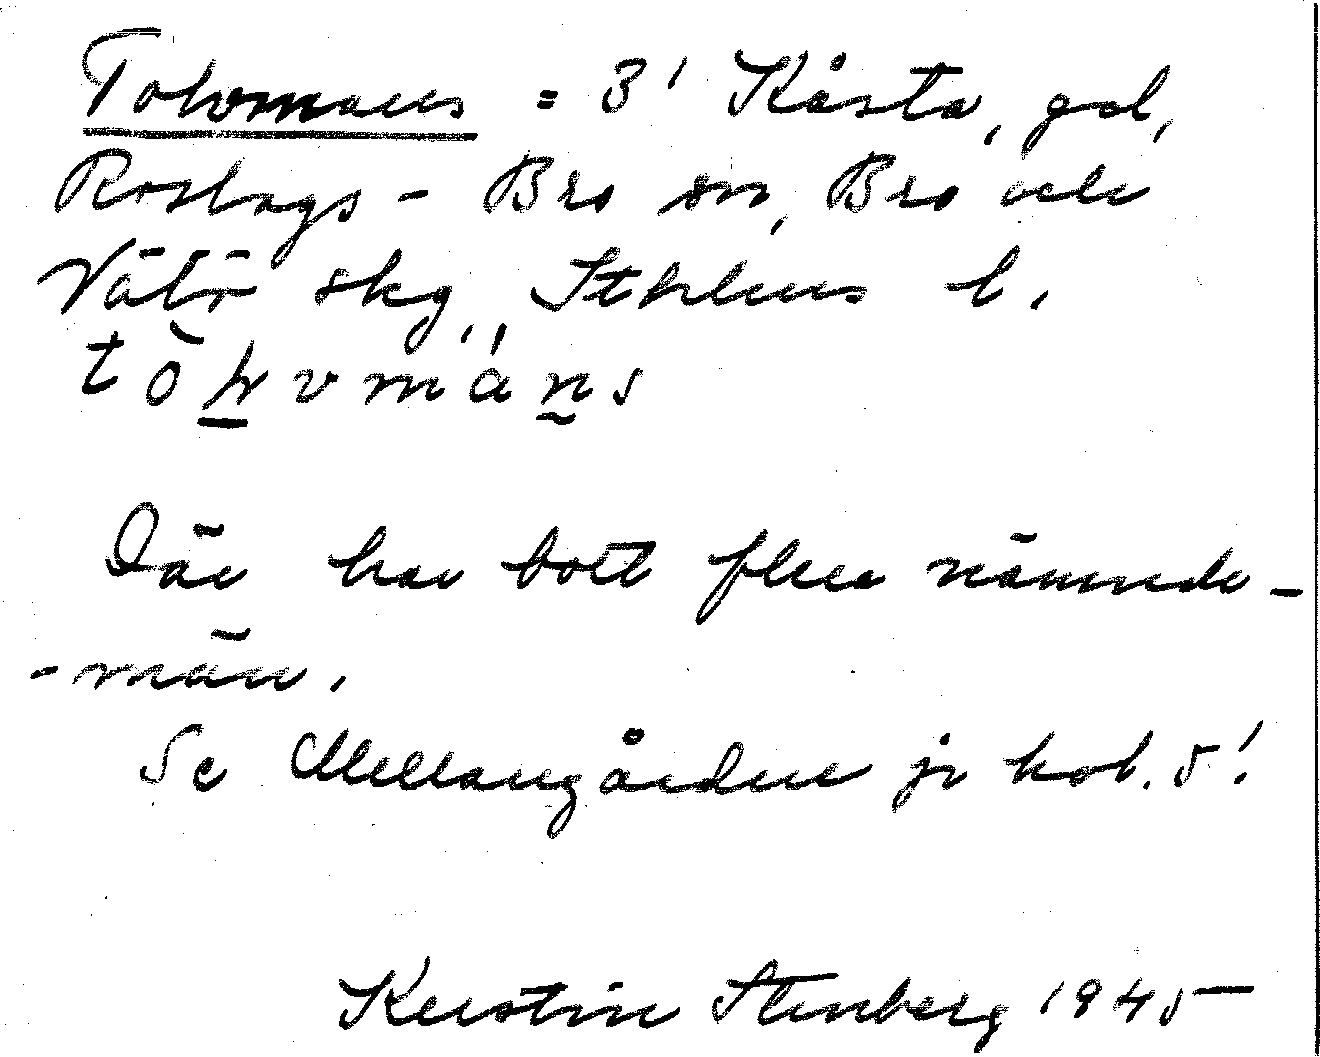 Tolvmans = 3' Kåsta, gd,
Roslags-Bro sn, Bro och
Vätö skg, Sthlms l.
tòḻvmáns
Där har bott flera nämnde-
-män.
Se Mellangården jr kol. 5!
Kerstin Stenberg 1945